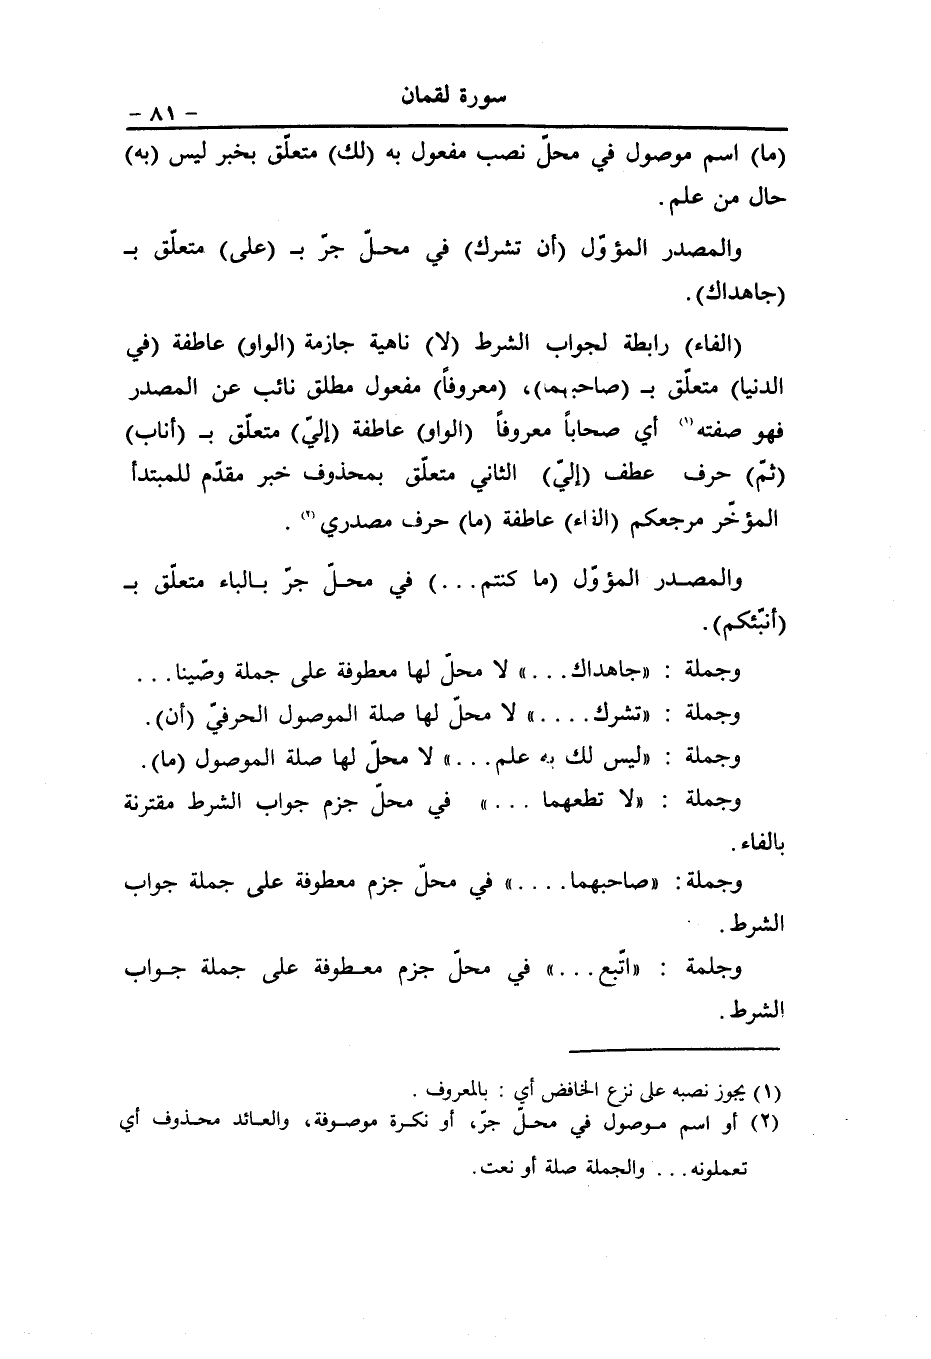 سورة لقمان
- ٨١ -
(ما) اسم موصول في محلّ نصب مفعول به (لك) متعلّق بخبر ليس (به)
حال من علم.
والمصدر المؤوّل (أن تشرك) في محلّ جرّ بـ (على) متعلّق بـ
(جاهداك).
(الفاء) رابطة لجواب الشرط (لا) ناهية جازمة (الواو) عاطفة (في
الدنيا) متعلّق بـ (صاحبهما)، (معروفاً) مفعول مطلق نائب عن المصدر
فهو صفته(١) أي صحاباً معروفاً (الواو) عاطفة (إليّ) متعلّق بـ (أناب)
(ثمّ) حرف عطف (إليّ) الثاني متعلّق بمحذوف خبر مقدّم للمبتدأ
المؤخّر مرجعكم (الفاء) عاطفة (ما) حرف مصدري(٢).
والمصدر المؤوّل (ما كنتم...) في محلّ جرّ بالباء متعلّق بـ
(أنبّئكم).
وجملة : «جاهداك...» لا محلّ لها معطوفة على جملة وصّينا...
وجملة : «تشرك....» لا محلّ لها صلة الموصول الحرفيّ (أن).
وجملة : «ليس لك به علم...» لا محلّ لها صلة الموصول (ما).
وجملة : «لا تطعهما ...» في محلّ جزم جواب الشرط مقترنة
بالفاء.
وجملة: «صاحبهما....» في محلّ جزم معطوفة على جملة جواب
الشرط.
وجلمة : «اتّبع...» في محلّ جزم معطوفة على جملة جواب
الشرط.
(١) يجوز نصبه على نزع الخافض أي : بالمعروف .
(٢) أو اسم موصول في محلّ جرّ، أو نكرة موصوفة، والعائد محذوف أي
تعملونه... والجملة صلة أو نعت.